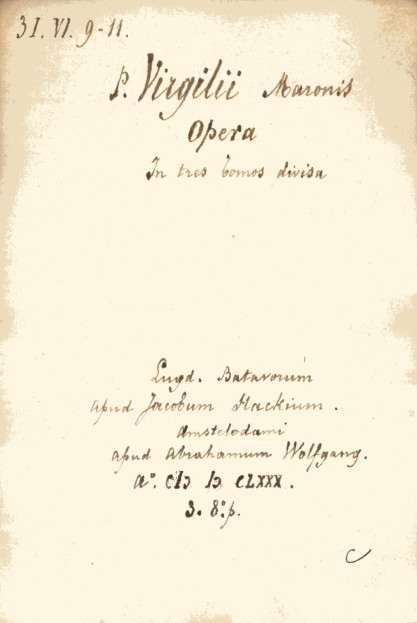 31. VI. 9-11.
P. Virgilii Maronis
Opera
In tres tomos divisa
Lugd. Batavorum
apud Jacobum Hackium.
Amstelodami
apud Abrahamum Wolfgang.
aº. cIɔ Iɔ cLXXX.
3. 8º.
C